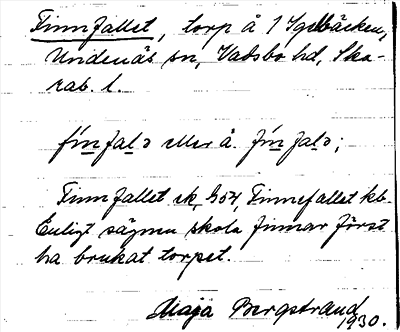 Finnfallet, torp å 1 Igelbäcken,
Undenäs sn, Vadsbo hd, Ska-
rab. l.
fín fal ɔ eller å. fín fal ɔ;
Finnfallet ek, Finnefallet kb.
Enligt sägnen skola finnar först
ha brukat torpet.
Maja Bergstrand
1930.